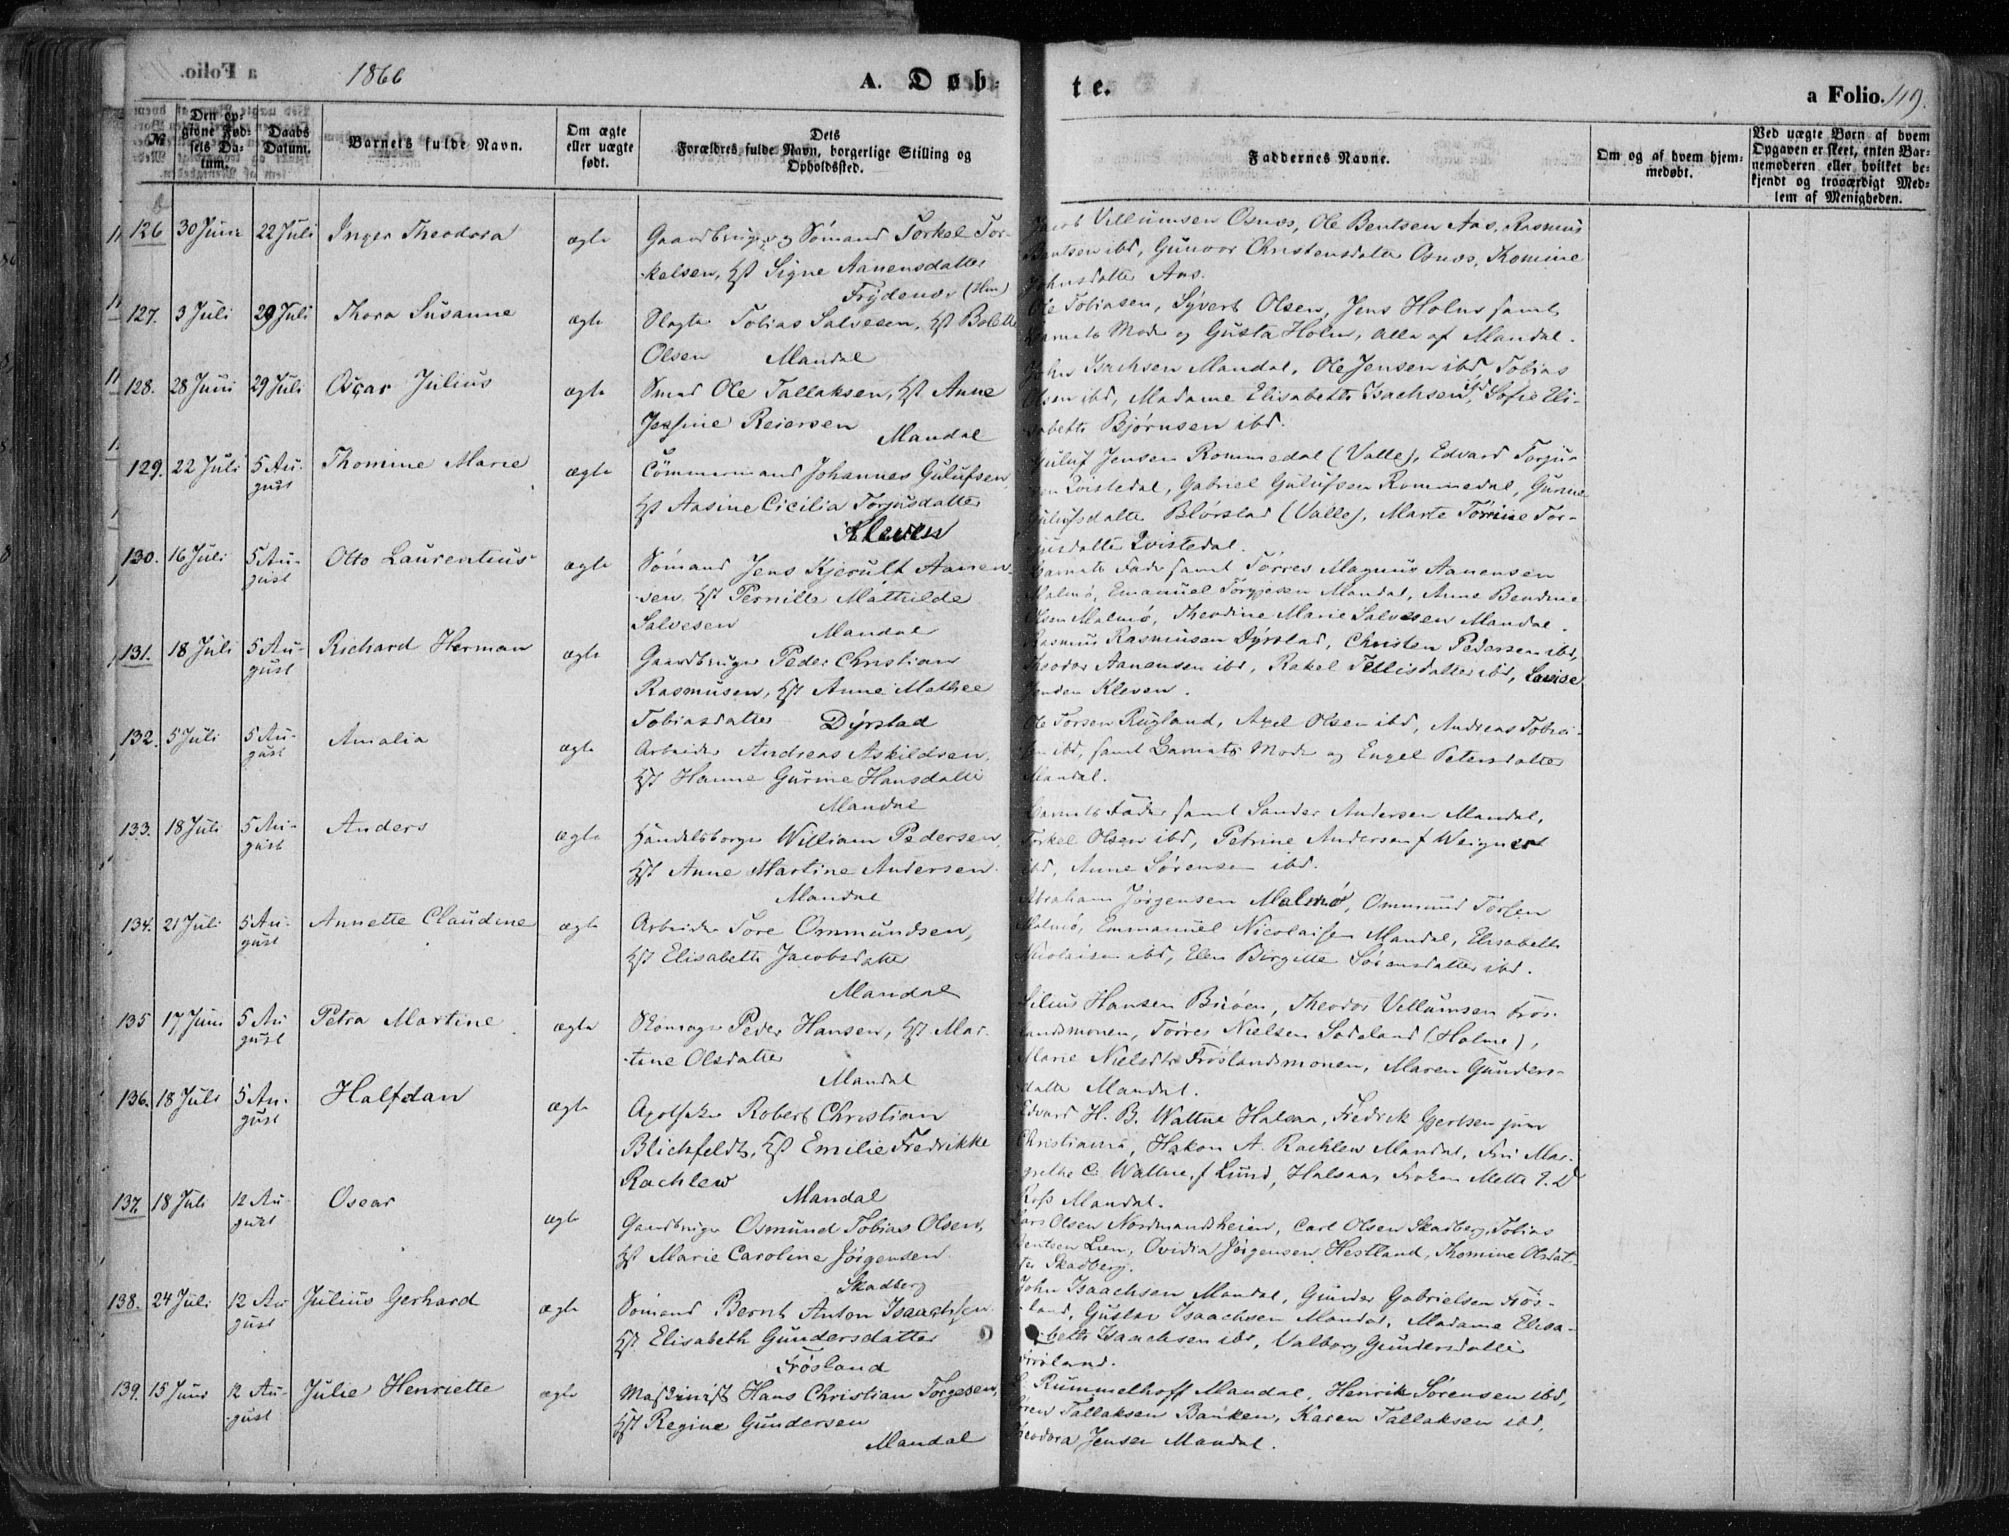 1866
A. Døb-
te.
a Folio. 119.
№
Den op-
givne Fød-
sels Da-
tum.
Daabs
Datum.
Barnets fulde Navn.
Om ægte
eller uægte
født.
Dets
Forældres fulde Navn, borgerlige Stilling og
Opholdssted.
Faddernes Navne.
Om og af hvem hjem-
medøbt.
Ved uægte Børn af hvem
Opgaven er skeet, enten Bar-
nemoderen eller hvilket be-
kjendt og troværdigt Med-
lem af Menigheden.
126 30 Juni 22 Juli Inger Theodora ægte Gaardbruger og Sømand Torkel Tor-
kelsen, Hst Signe Aanensdatter
Frydenes (Hm)
Villumsen Osnes, Ole Bentsen Aas, Rasmus
Bentsen ibd, Gunvor Christensdatter Osnes, Komine
datter Aas.
127. 3 Juli 29 Juli Thora Susanne ægte Slagter Tobias Salvesen, Hst Bolette
Olsen Mandal
Ole Tobiasen, Syvert Olsen, Jens Holm samt
Barnets Moder og Gusta Holm, alle af Mandal.
128. 28 Juni 29 Juli Oscar Julius ægte Smed Ole Tallaksen, Hst Anne
Josfine Reiersen
Mandal
John Isachsen Mandal, Ole Jensen ibd, Tobias
Olsen ibd, Madame Elisabeth Isachsen ibd, Sofie Eli-
sabeth Bjørnsen ibd.
129. 22 Juli 5 Au-
gust Thomine Marie ægte Tømmermand Johannes Gulufsen,
Hst Aasine Cicilia Torjusdatter
Kleven
Guluf Jensen Rommedal (Valle), Edvard Torju-
sen Qvistedal, Gabriel Gulufsen Rommedal, Gurine
Gulufsdatter Blørstad (Valle), Marte Torine Tor-
jusdatter Qvistedal.
130. 16 Juli 5 Au-
gust Otto Laurentius ægte Sømand Jens Kjerult Aanen-
sen, Hst Pernille Mathilde
Salvesen Mandal
Barnets Fader samt Torres Magnus Aanensen
Malmø, Emanuel Torgjesen Mandal, Anne Bendine
Olsen Malmø, Theodine Marie Salvesen Mandal.
131. 18 Juli 5 Au-
gust Richard Herman ægte Gaardbruger Peder Christian
Rasmusen, Hst Anne Mathee
Tobiasdatter Dyrstad
Rasmus Rasmusen Dyrstad, Christen Pedersen ibd,
Theodor Aanensen ibd, Rakel Tellisdatter ibd, Lovise
Kleven.
132. 5 Juli 5 Au-
gust Amalia ægte Arbeider Andreas Askildsen,
Hst Hanne Gurine Hansdatter
Mandal
Ole Torsen Rugland, Axel Olsen ibd, Andreas Tobia-
sen ibd, samt Barnets Moder og Engel Petersdatter
Mandal.
133. 18 Juli 5 Au-
gust Anders ægte Handelsborger William Pedersen,
Hst Anne Martine Andersen
Mandal
Barnets Fader samt Sander Andersen Mandal,
Torkel Olsen ibd, Petrine Andersen f Weigner
ibd, Anne Sørensen ibd.
134. 21 Juli 5 Au-
gust Annette Claudine ægte Arbeider Tore Ommundsen,
Hst Elisabeth Jacobsdatter
Mandal
Abraham Jørgensen Malmø, Ommund Torsen
Malmø, Emmanuel Nicolaisen Mandal, Elisabeth
Nicolaisen ibd, Elen Birgitte Sørensdatter ibd.
135 17 Juni 5 Au
gust Petra Martine ægte Skomager Peder Hansen, Hst Mar-
tine Olsdatter
Mandal
Hansen Buøen, Theodor Villumsen Frøs-
landsmonen, Torres Nielsen Sodeland (Holme),
Marie Nielsdtr Frøslandsmonen, Maren Gunders-
datter Mandal.
136. 18 Juli 5 Au-
gust Halfdan ægte Apotheker Robert Christian
Blichfeldt, Hst Emilie Fredrikke
Rachlew
Mandal
Edvard H. B. Wattne Halsaa, Fredrik Gjertsen jun
Christiania, Hakon A. Rachlew Mandal, Fru Mar-
grethe C. Wattne f Lund, Halsaa, Frøken Mette
Ross Mandal.
137. 18 Juli 12 Au-
gust Oscar ægte Gaardbruger Osmund Tobias Olsen,
Hst Marie Caroline Jørgensen
Skadberg
Lars Olsen Nordmandsheien, Carl Olsen Skadberg, Tobias
Bentsen Lien, Ovidia Jørgensen Hestland, Thomine Olsdat-
ter Skadberg.
138. 24 Juli 12 Au
gust Julius Gerhard ægte Sømand Bernt Anton Isaachsen
Hst Elisabeth Gundersdatter
Frøsland
John Isaachsen Mandal, Gunder Gabrielsen Frøs-
land, Gustav Isaachsen Mandal, Madame Elisa-
beth Isaachsen ibd, Valborg Gundersdatter
Frøsland.
139. 15 Juni 12 Au-
gust Julie Henriette ægte Maskinist Hans Christian Torgesen,
Hst Regine Gundersen
Mandal
Rummelhoff Mandal, Henrik Sørensen ibd,
Søren Tallaksen Banken, Karen Tallaksen ibd,
Theodora Jensen Mandal.